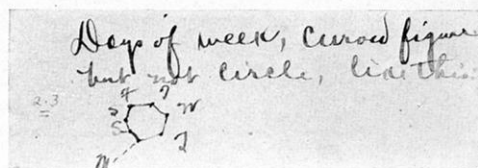 Days of week, curved figure
but not circle, like this:
2.3
F T
S W
S T
M